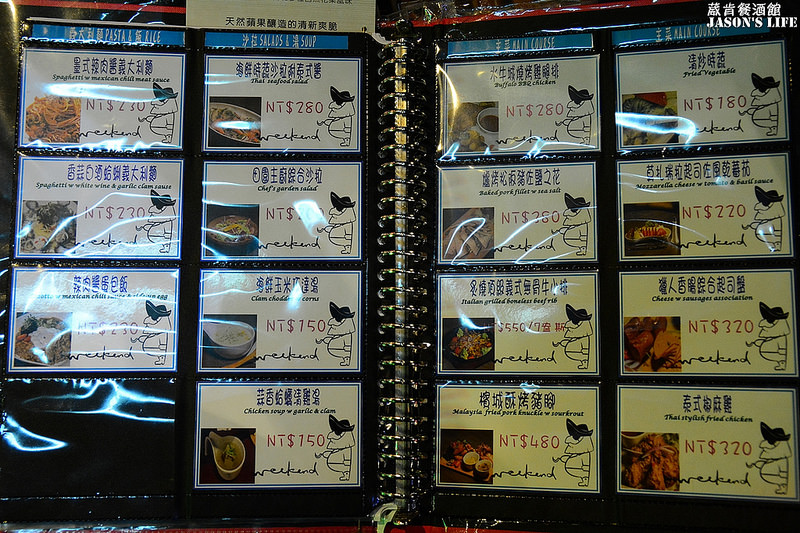 天然蘋果釀造的清新爽脆
葳肯餐酒館
JASON'S LIFE
PASTA & 飯 RICE
墨式辣肉醬義大利麵
Spaghetti w mexican chili meat sauce
NT$230
weekend
香蒜白酒蛤蜊義大利麵
Spaghetti w white wine & garlic clam sause
NT$230
weekend
辣肉醬蛋包飯
NT$230
weekend
沙拉 SALADS & 湯 SOUP
海鮮時蔬沙拉附泰式醬
Thai seafood salad
NT$280
weekend
田園主廚綜合沙拉
Chef's garden salad
weekend
海鮮玉米巧達湯
Clam chodder w corns
NT$150
weekend
蒜香蛤蠣清雞湯
Chicken soup w garlic & clam
NT$150
weekend
主菜 MAIN COURSE
水牛城燒烤雞腿排
Buffalo BBQ chicken
NT$280
weekend
爐烤松板豬佐鹽之花
Baked pork fillet w sea salt
weekend
炙燒頂級義式無骨牛小排
Italian grilled boneless beef rib
weekend
檳城酥烤豬腳
Malaysia fried pork knuckle w sourkrout
NT$480
weekend
主菜 MAIN COURSE
清炒時蔬
Fried Vegetable
NT$180
weekend
莫札瑞拉起司佐風乾蕃茄
Mozzarella cheese w tomato & basil sauce
NT$220
weekend
獵人香腸綜合起司盤
Cheese w sausages association
NT$320
weekend
泰式椒麻雞
Thai stylish fried chicken
NT$320
weekend